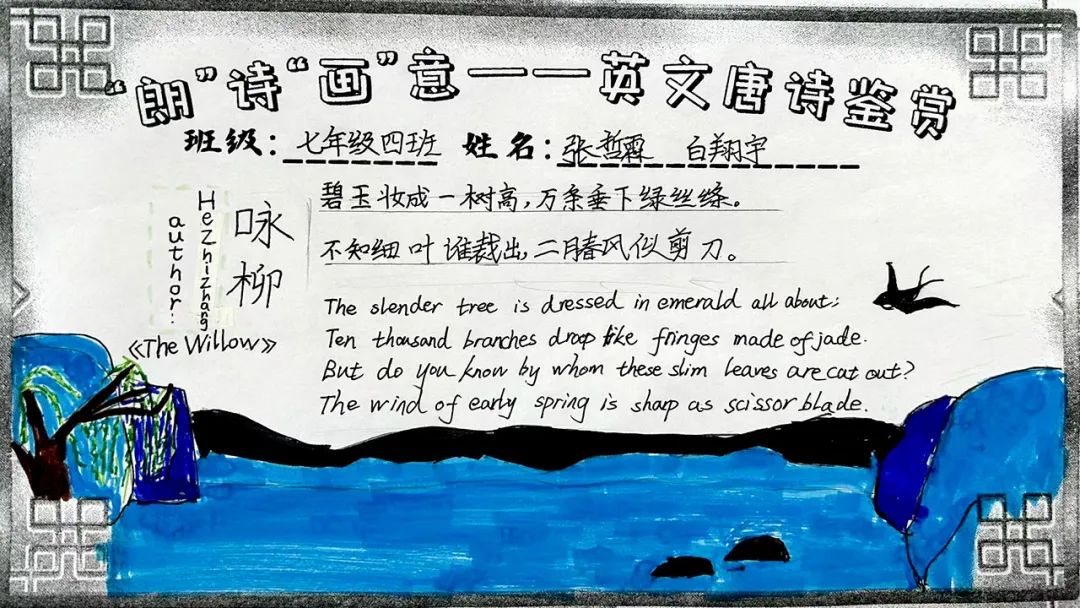 “朗”诗“画”意——英文唐诗鉴赏
班级：七年级四班 姓名：张哲霖 白翔宇
咏柳
HeZhizhang
author:
《The Willow》
碧玉妆成一树高，万条垂下绿丝绦。
不知细叶谁裁出，二月春风似剪刀。
The slender tree is dressed in emerald all about;
Ten thousand branches droop like fringes made of jade.
But do you know by whom these slim leaves are cat out?
The wind of early spring is sharp as scissor blade.